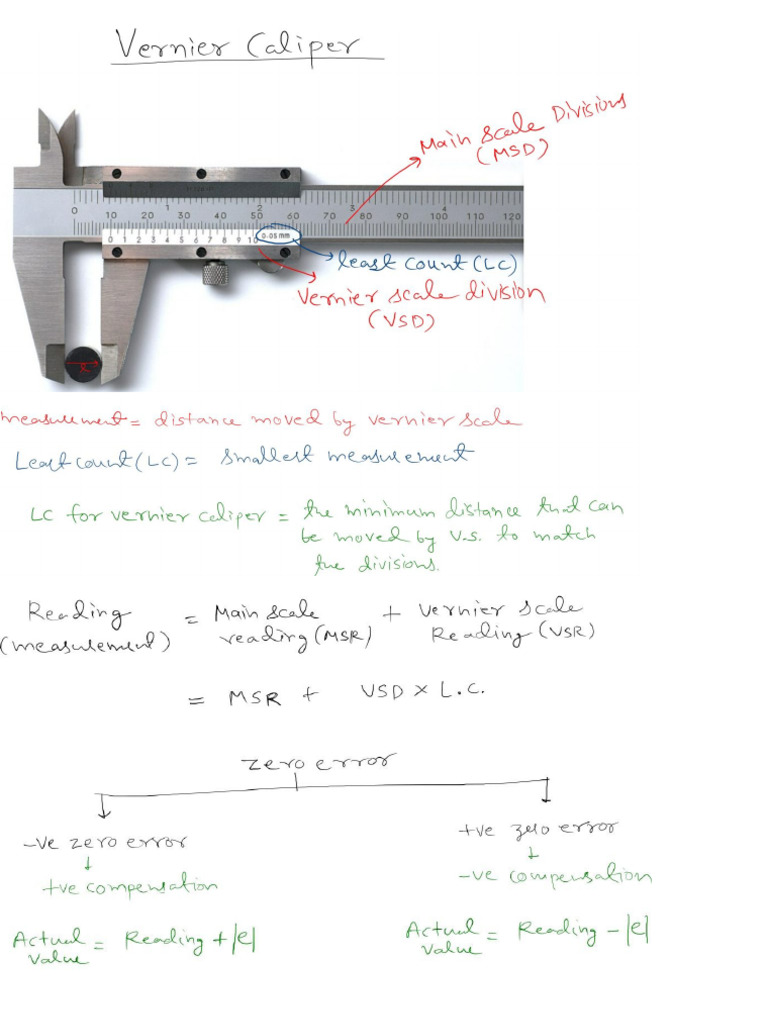 Vernier Caliper
Main Scale Divisions
(MSD)
1 2 3 4
0 10 20 30 40 50 60 70 80 90 100 110 120
0 1 2 3 4 5 6 7 8 9 10 0.05 mm
least count (LC)
Vernier scale division
(VSD)
measurement = distance moved by vernier scale
Least count (LC) = smallest measurement
LC for vernier caliper = the minimum distance that can
be moved by v.s. to match
the divisions.
Reading = Main scale + Vernier scale
(measurement) reading (MSR) Reading (VSR)
= MSR + VSD × L.C.
zero error
-ve zero error +ve zero error
+ve compensation -ve compensation
Actual = Reading + |e| Actual = Reading - |e|
value value